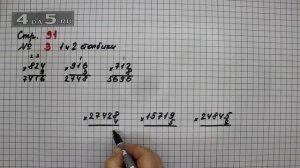 4 DA 5.RU
Стр. 91
№ 3 1 и 2 столбики
×824 ×916 ×712
7416 2748 5696
×27428 ×15719 ×24845
4 5 6